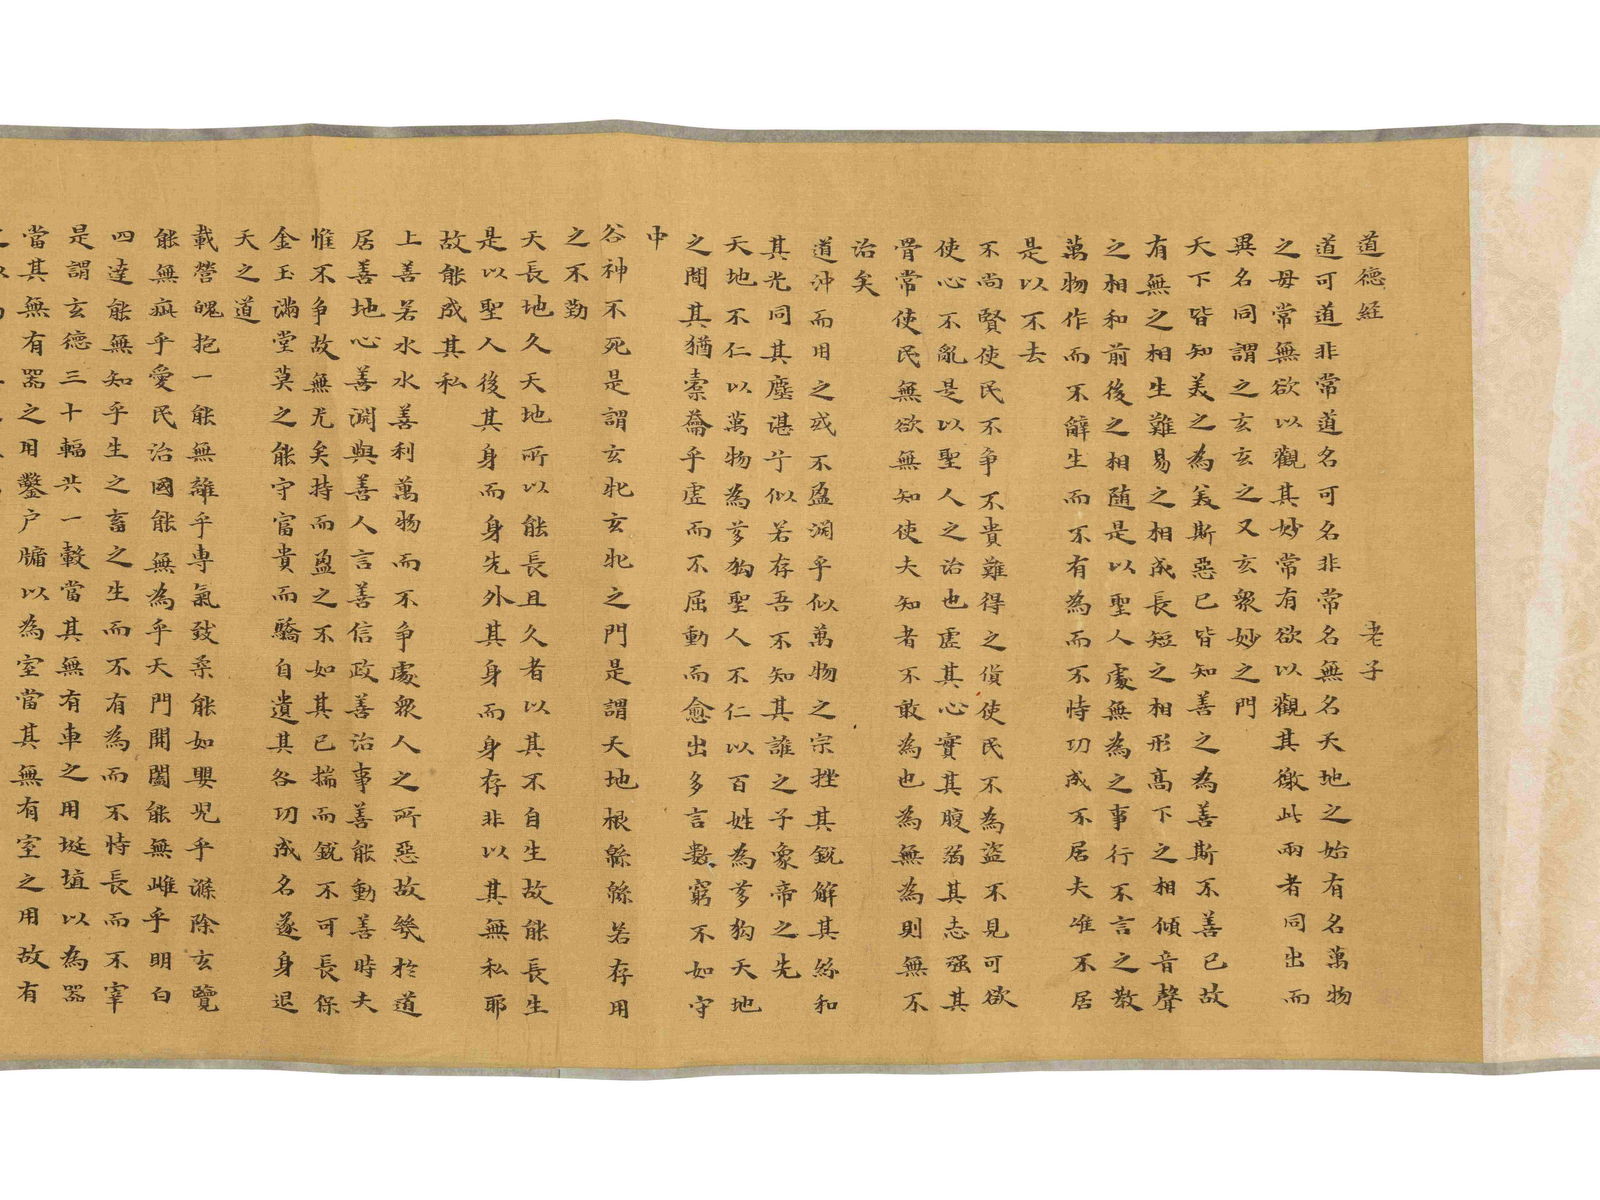 道德經 老子
道可道非常道名可名非常名無名天地之始有名萬物
之母常無欲以觀其妙常有欲以觀其徼此兩者同出而
異名同謂之玄玄之又玄衆妙之門
天下皆知美之為美斯惡已皆知善之為善斯不善已故
有無之相生難易之相成長短之相形高下之相傾音聲
之相和前後之相随是以聖人處無為之事行不言之教
萬物作而不辭生而不有為而不恃功成不居夫唯不居
是以不去
不尚賢使民不争不貴難得之貨使民不為盜不見可欲
使心不亂是以聖人之治也虛其心實其腹弱其志强其
骨常使民無欲無知使夫知者不敢為也為無為則無不
治矣
道沖而用之或不盈淵乎似萬物之宗挫其鋭解其紛和
其光同其塵湛兮似若存吾不知其誰之子象帝之先
天地不仁以萬物為芻狗聖人不仁以百姓為芻狗天地
之間其猶橐籥乎虛而不屈動而愈出多言數窮不如守
中
谷神不死是謂玄牝玄牝之門是謂天地根緜緜若存用
之不勤
天長地久天地所以能長且久者以其不自生故能長生
是以聖人後其身而身先外其身而身存非以其無私耶
故能成其私
上善若水水善利萬物而不争處衆人之所惡故幾於道
居善地心善淵與善人言善信政善治事善能動善時夫
惟不争故無尤矣持而盈之不如其已揣而鋭不可長保
金玉滿堂莫之能守富貴而驕自遺其咎功成名遂身退
天之道
載營魄抱一能無離乎專氣致柔能如嬰兒乎滌除玄覽
能無疵乎愛民治國能無為乎天門開闔能無雌乎明白
四達能無知乎生之畜之生而不有為而不恃長而不宰
是謂玄德三十輻共一轂當其無有車之用埏埴以為器
當其無有器之用鑿户牖以為室當其無有室之用故有